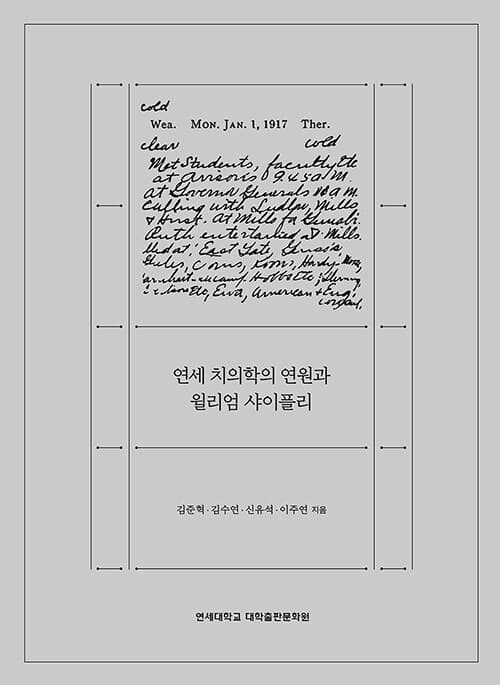 cold
Wea. MON. JAN. 1, 1917 Ther.
clear cold
Met Students, faculty etc
at Avison's 9.45 a.m.
at Governor Generals 10 a m
Calling with Ludlow, Mills
& Hirst. At Mills for
Ruth entertained at Mills.
East Gate,
Coons, Koons, Hardy
American & Eng
연세 치의학의 연원과
윌리엄 샤이플리
김준혁·김수연·신유석·이주연 지음
연세대학교 대학출판문화원